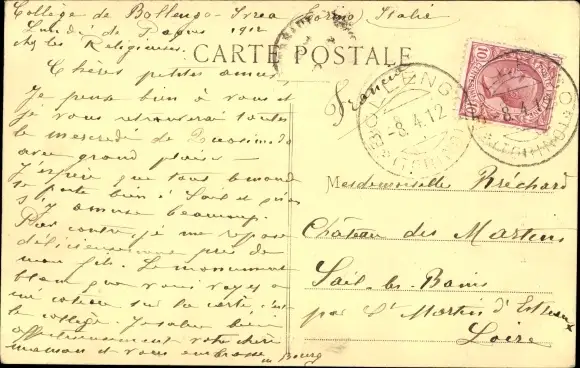 Collège de Bollengo - Ivrea Torino, Italie
Lundi de Pâques 1912
chez les Religieuses.
CARTE POSTALE
Chères petites amies,
Je pense bien à vous et
je vous retrouverai toutes
le mercredi de Quasimodo
avec grand plaisir
J'espère que tout le monde
se porte bien à Sail et qu'on
s'y amuse beaucoup.
Par contre, je me repose
délicieusement près de
mon fils. Le monument
blanc que vous voyez
sur la carte, c'est
le collège. J'embrasse bien
affectueusement votre chère
maman et vous embrasse
Francia
BOLLENGO
-8.4.12
(TORINO)
BOLLENGO
-8.4.12
(TORINO)
10
Mesdemoiselles Bréchard
Château des Martins
Sail-les-Bains
par St Martin d'Estreaux
Loire